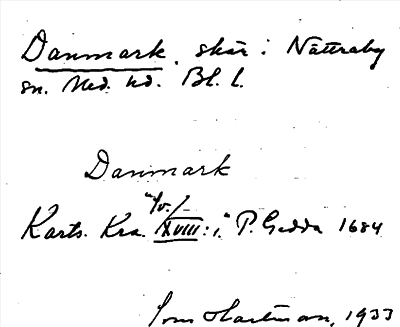 Danmark. skär i Nättraby
sn. Med. hd. Bl. l.
Danmark
Karts. Kra. XVIII: i, P. Gedda 1684
Hartman, 1933